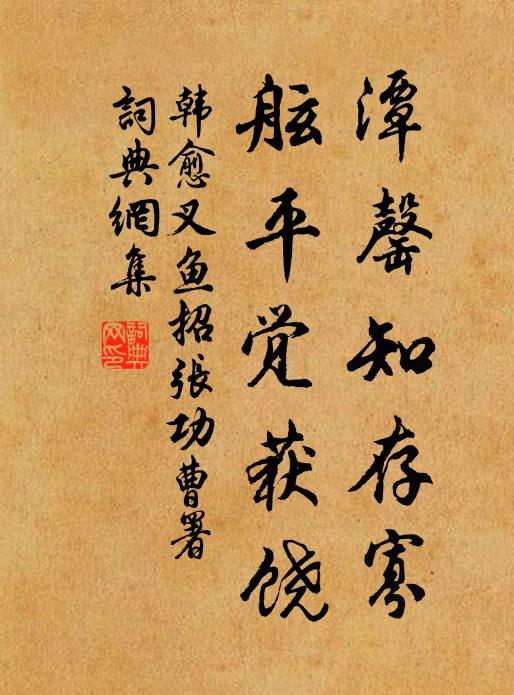 潭罄知存寡
舷平觉获饶
韩愈叉鱼招張功曹署
詞典網集
詞典
网印